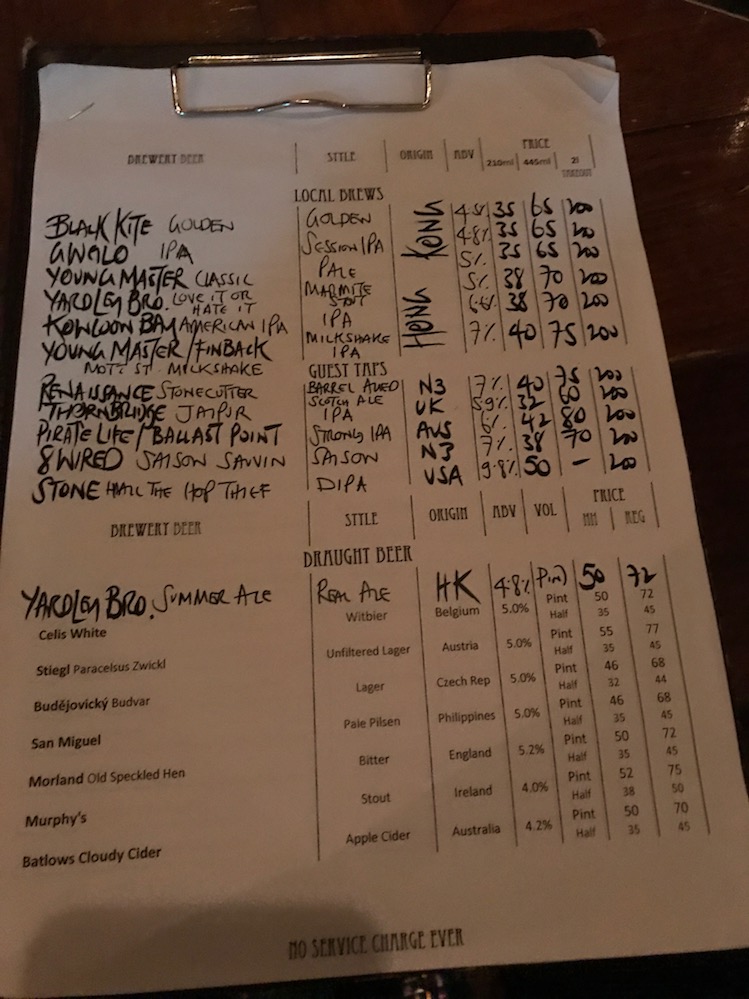 BREWERY BEER STYLE ORIGIN ABV PRICE
210ml 445ml 2l
TAKEOUT
LOCAL BREWS
BLACK KITE GOLDEN GOLDEN HONG KONG 4.5% 35 65 200
GWALO IPA SESSION IPA 4.8% 35 65 200
YOUNG MASTER CLASSIC PALE 5% 35 65 200
YARDLEY BRO. LOVE IT OR HATE IT MARMITE STOUT 5% 38 70 200
KOWLOON BAY AMERICAN IPA IPA 6.6% 38 70 200
YOUNG MASTER/FINBACK MILKSHAKE IPA 7% 40 75 200
MOTT ST. MILKSHAKE
GUEST TAPS
RENAISSANCE STONECUTTER BARREL AGED SCOTCH ALE NZ 7% 40 75 200
THORNBRIDGE JAIPUR IPA UK 5.9% 32 80 200
PIRATE LIFE/BALLAST POINT STRONG IPA AUS 6% 42 80 200
8 WIRED SAISON SAUVIN SAISON NZ 7% 38 70 200
STONE HAIL THE HOP THIEF DIPA USA 9.8% 50 - 200
BREWERY BEER STYLE ORIGIN ABV VOL PRICE
HH REG
DRAUGHT BEER
YARDLEY BRO. SUMMER ALE REAL ALE HK 4.8% Pint 50 72
Celis White Witbier Belgium 5.0% Pint 50 72
Half 35 45
Stiegl Paracelsus Zwickl Unfiltered Lager Austria 5.0% Pint 55 77
Half 35 45
Budějovický Budvar Lager Czech Rep 5.0% Pint 46 68
Half 32 44
San Miguel Pale Pilsen Philippines 5.0% Pint 46 68
Half 35 45
Morland Old Speckled Hen Bitter England 5.2% Pint 50 72
Half 35 45
Murphy's Stout Ireland 4.0% Pint 52 75
Half 38 50
Batlows Cloudy Cider Apple Cider Australia 4.2% Pint 50 70
Half 35 45
NO SERVICE CHARGE EVER